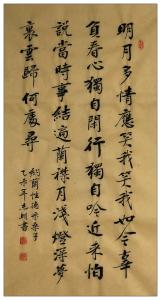 明月多情應笑我笑我如今辜
負春心獨自閑行獨自吟近來怕
說當時事結遍蘭襟月淺燈深夢
裏雲歸何處尋
納蘭性德采桑子
乙未年書